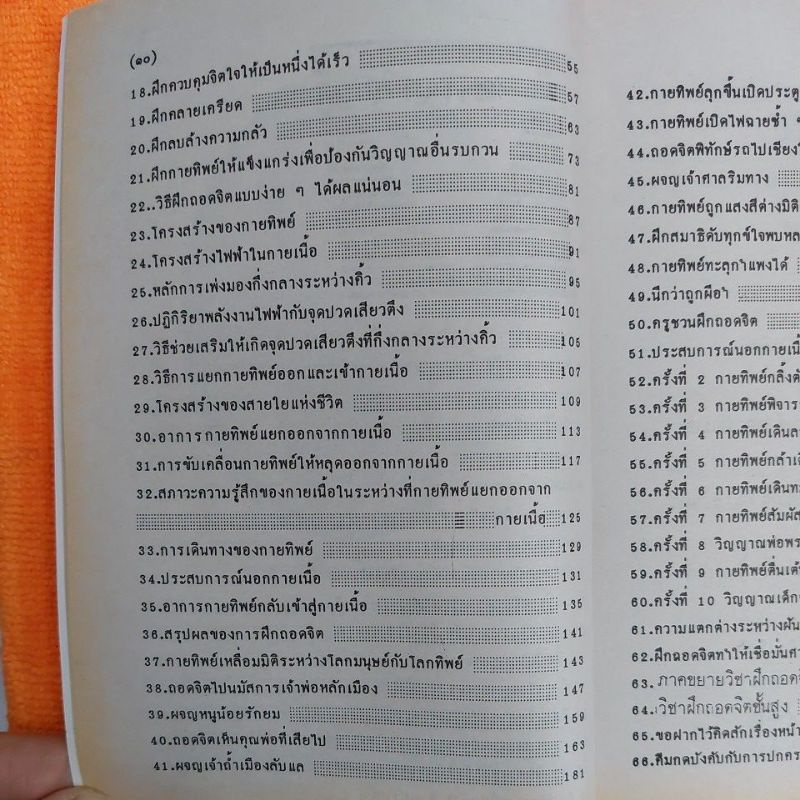 (๑๐)
18.ฝึกควบคุมจิตใจให้เป็นหนึ่งได้เร็ว 55
19.ฝึกคลายเครียด 57
20.ฝึกลบล้างความกลัว 63
21.ฝึกกายทิพย์ให้แข็งแกร่งเพื่อป้องกันวิญญาณอื่นรบกวน 73
22..วิธีฝึกถอดจิตแบบง่าย ๆ ได้ผลแน่นอน 81
23.โครงสร้างของกายทิพย์ 87
24.โครงสร้างไฟฟ้าในกายเนื้อ 91
25.หลักการเพ่งมองกึ่งกลางระหว่างคิ้ว 95
26.ปฏิกิริยาพลังงานไฟฟ้ากับจุดปวดเสียวตึง 101
27.วิธีช่วยเสริมให้เกิดจุดปวดเสียวตึงที่กึ่งกลางระหว่างคิ้ว 105
28.วิธีการแยกกายทิพย์ออกและเข้ากายเนื้อ 107
29.โครงสร้างของสายใยแห่งชีวิต 109
30.อาการ กายทิพย์แยกออกจากกายเนื้อ 113
31.การขับเคลื่อนกายทิพย์ให้หลุดออกจากกายเนื้อ 117
32.สภาวะความรู้สึกของกายเนื้อในระหว่างที่กายทิพย์แยกออกจาก
กายเนื้อ 125
33.การเดินทางของกายทิพย์ 129
34.ประสบการณ์นอกกายเนื้อ 131
35.อาการกายทิพย์กลับเข้าสู่กายเนื้อ 135
36.สรุปผลของการฝึกถอดจิต 141
37.กายทิพย์เหลื่อมมิติระหว่างโลกมนุษย์กับโลกทิพย์ 143
38.ถอดจิตไปนมัสการเจ้าพ่อหลักเมือง 147
39.ผจญหนูน้อยรักยม 159
40.ถอดจิตเห็นคุณพ่อที่เสียไป 163
41.ผจญเจ้าถ้ำเมืองลับแล 181
42.กายทิพย์ลุกขึ้นเปิดประตู
43.กายทิพย์เปิดไฟฉายซ้ำ ๆ
44.ถอดจิตพิทักษ์รถไปเชียงใ
45.ผจญเจ้าศาลริมทาง
46.กายทิพย์ถูกแสงสีต่างมิติ
47.ฝึกสมาธิดับทุกข์ใจพบหล
48.กายทิพย์ทะลุกำแพงได้
49.นึกว่าถูกผีอำ
50.ครูชวนฝึกถอดจิต
51.ประสบการณ์นอกกายเนื้
52.ครั้งที่ 2 กายทิพย์กลิ้งตั
53.ครั้งที่ 3 กายทิพย์พิจาร
54.ครั้งที่ 4 กายทิพย์เดินล
55.ครั้งที่ 5 กายทิพย์กล้าเดิ
56.ครั้งที่ 6 กายทิพย์เดินท
57.ครั้งที่ 7 กายทิพย์สัมผัส
58.ครั้งที่ 8 วิญญาณพ่อพร
59.ครั้งที่ 9 กายทิพย์ตื่นเต้
60.ครั้งที่ 10 วิญญาณเด็ก
61.ความแตกต่างระหว่างฝัน
62.ฝึกถอดจิตทำให้เชื่อมั่นศา
63. ภาคขยายวิชาฝึกถอดจิ
64.วิชาฝึกถอดจิตชั้นสูง
65.ขอฝากไว้คิดสักเรื่องหน้า
66.คีมกดบังคับกับการปกคร